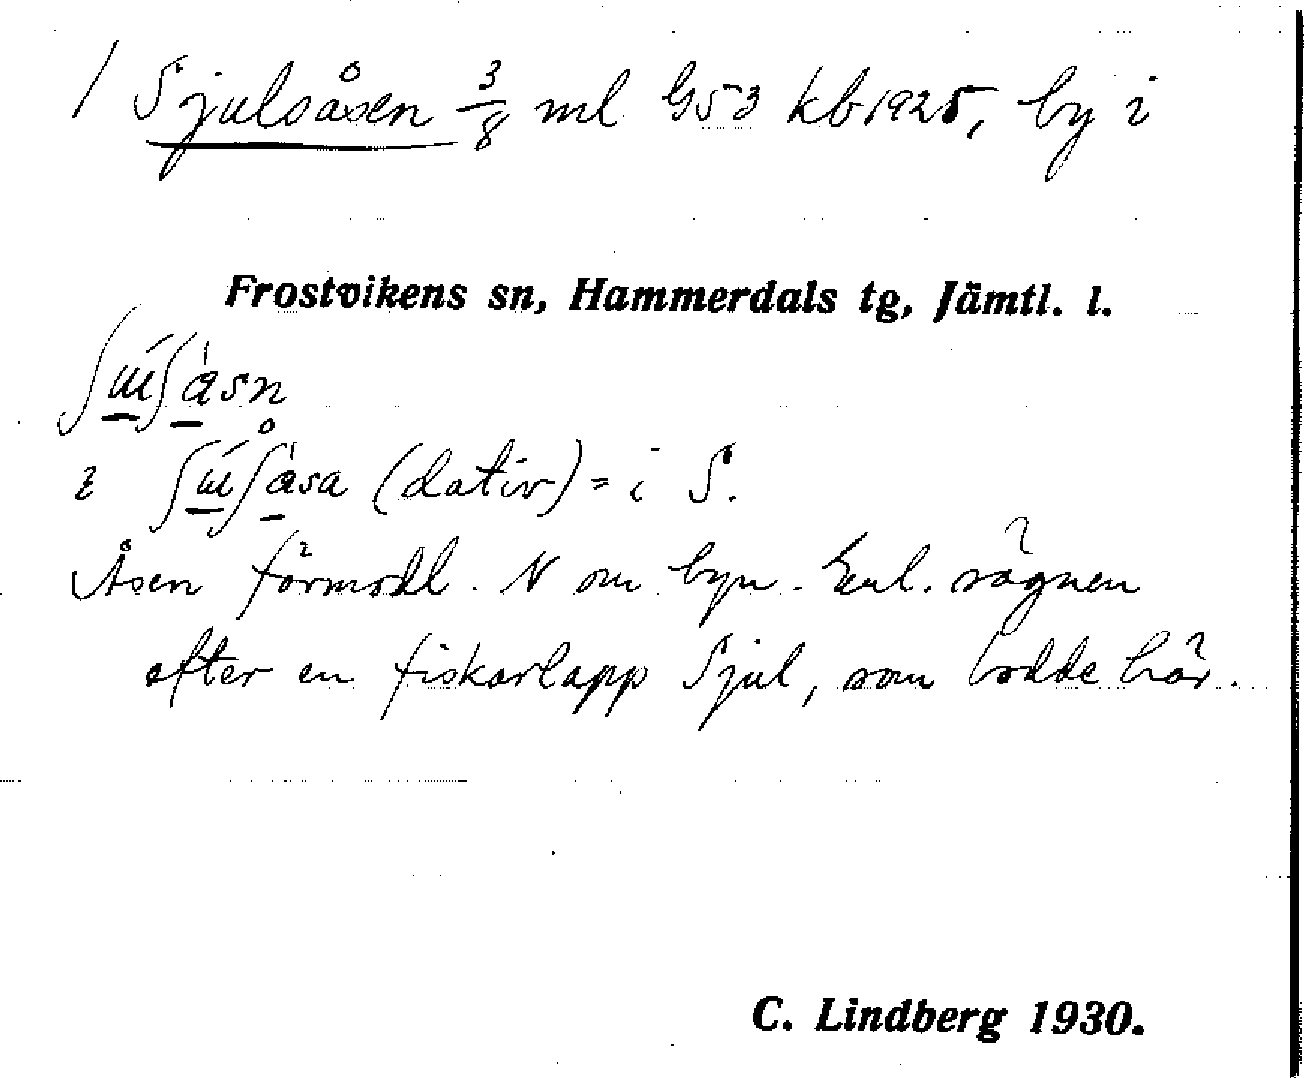 / Sjulsåsen 3/8 ml G53 kb 1925, by i
Frostvikens sn, Hammerdals tg, Jämtl. l.
(dativ) = i S.
Åsen förmodl. N om byn. Enl. sägnen
efter en fiskarlapp Sjul, som bodde här.
C. Lindberg 1930.